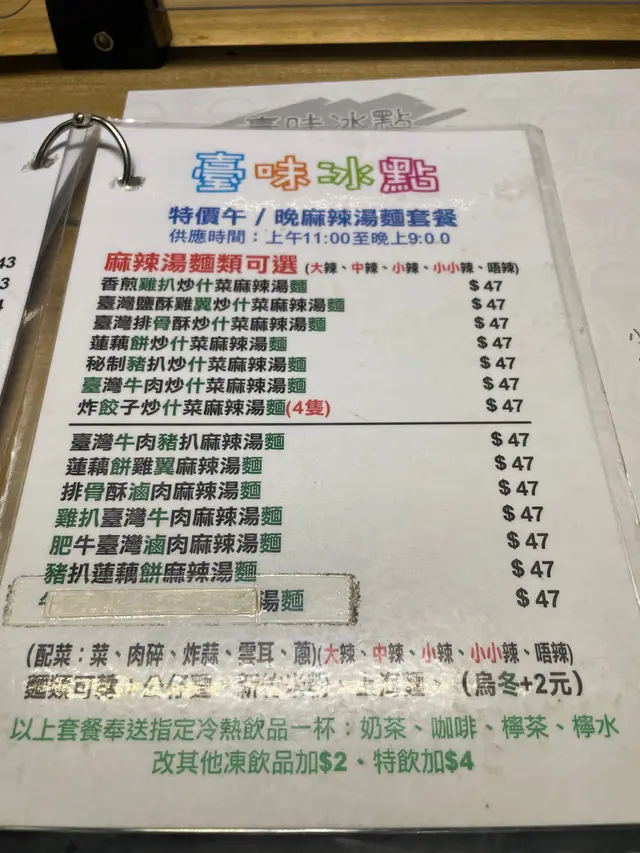 臺味冰點
臺味冰點
特價午/晚麻辣湯麵套餐
供應時間：上午11:00至晚上9:00
麻辣湯麵類可選 (大辣、中辣、小辣、小小辣、唔辣)
香煎雞扒炒什菜麻辣湯麵 $47
臺灣鹽酥雞翼炒什菜麻辣湯麵 $47
臺灣排骨酥炒什菜麻辣湯麵 $47
蓮藕餅炒什菜麻辣湯麵 $47
秘制豬扒炒什菜麻辣湯麵 $47
臺灣牛肉炒什菜麻辣湯麵 $47
炸餃子炒什菜麻辣湯麵(4隻) $47
臺灣牛肉豬扒麻辣湯麵 $47
蓮藕餅雞翼麻辣湯麵 $47
排骨酥滷肉麻辣湯麵 $47
雞扒臺灣牛肉麻辣湯麵 $47
肥牛臺灣滷肉麻辣湯麵 $47
豬扒蓮藕餅麻辣湯麵 $47
湯麵 $47
(配菜：菜、肉碎、炸蒜、雲耳、蔥)(大辣、中辣、小辣、小小辣、唔辣)
麵類可 公仔麵、新竹米粉、上海麵、(烏冬+2元)
以上套餐奉送指定冷熱飲品一杯：奶茶、咖啡、檸茶、檸水
改其他凍飲品加$2、特飲加$4
43
3
4